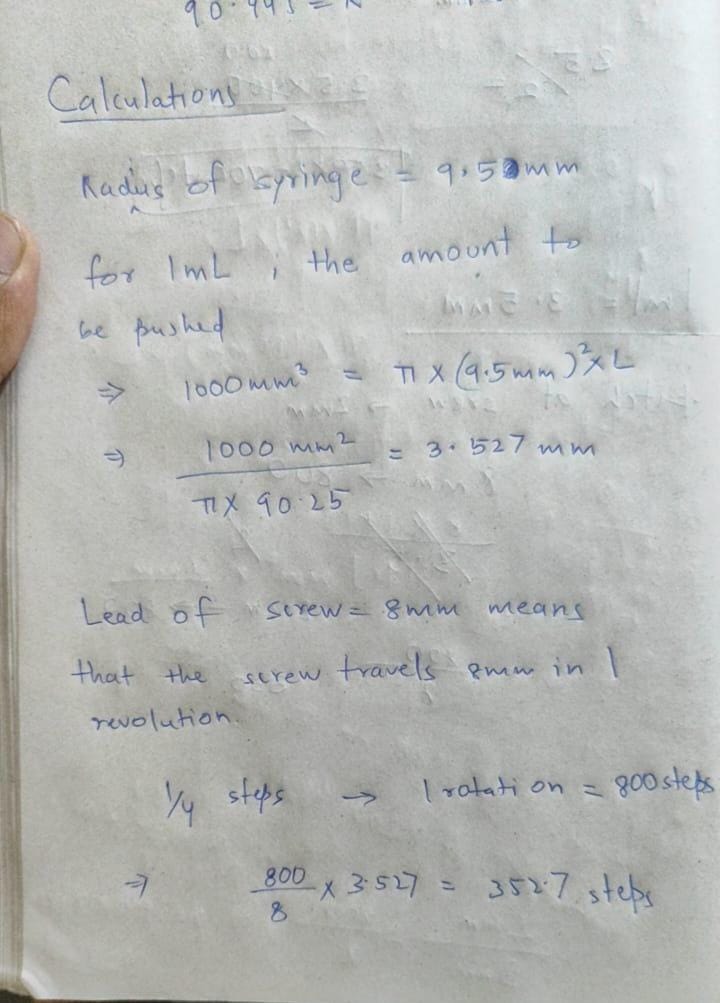 90.495 =
Calculations
Radius of syringe = 9.5 mm
for 1mL, the amount to
be pushed
⇒ 1000mm³ = π × (9.5mm)² × L
⇒ 1000 mm² / π × 90.25 = 3.527 mm
Lead of screw = 8mm means
that the screw travels 8mm in 1
revolution.
1/4 steps → 1 rotation = 800 steps
⇒ 800/8 × 3.527 = 352.7 steps